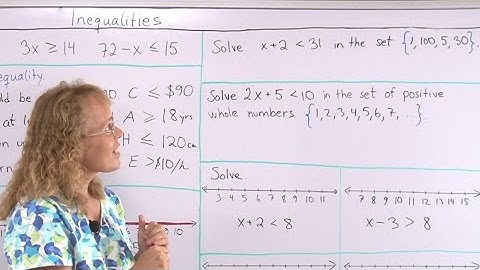 Inequalities
3x ≥ 14    72 - x ≤ 15
equality.
C ≤ $90
A ≥ 18 yrs
H ≤ 120 cm
E > $10/h
10
Solve x + 2 < 31 in the set {1, 100, 5, 30}.
Solve 2x + 5 < 10 in the set of positive
whole numbers {1, 2, 3, 4, 5, 6, 7, ...}.
Solve.
3 4 5 6 7 8 9 10 11
x + 2 < 8
7 8 9 10 11 12 13 14 15
x - 3 > 8